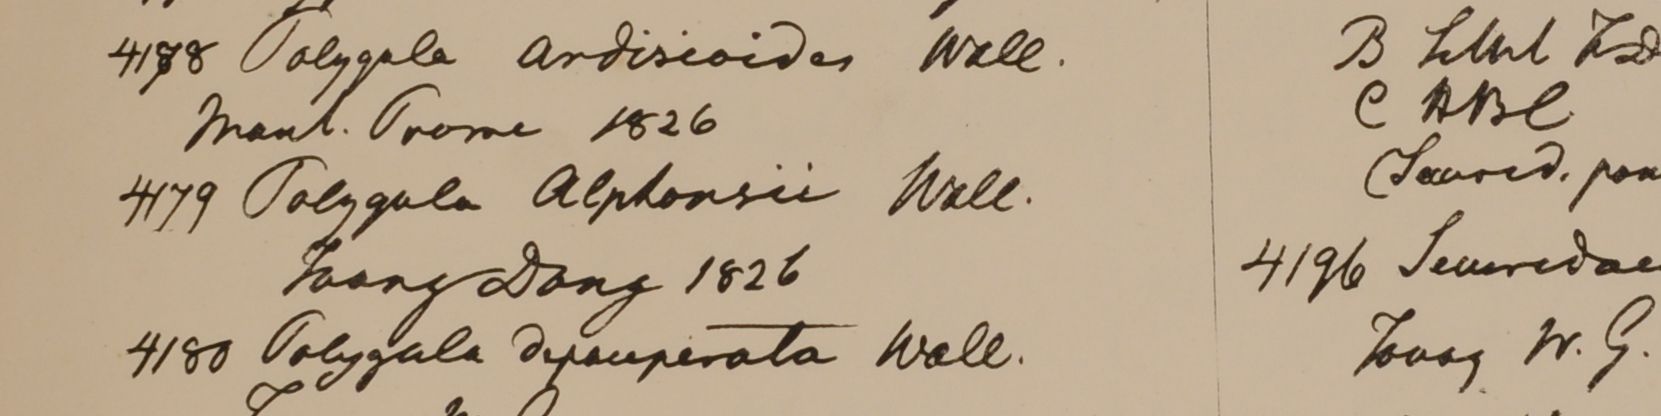 4178 Polygala ardisioides Wall.
Mont. Prome 1826
4179 Polygala Alphonsii Wall.
Toong Dong 1826
4180 Polygala depauperata Wall.
B
C HBC
4196
W. G.